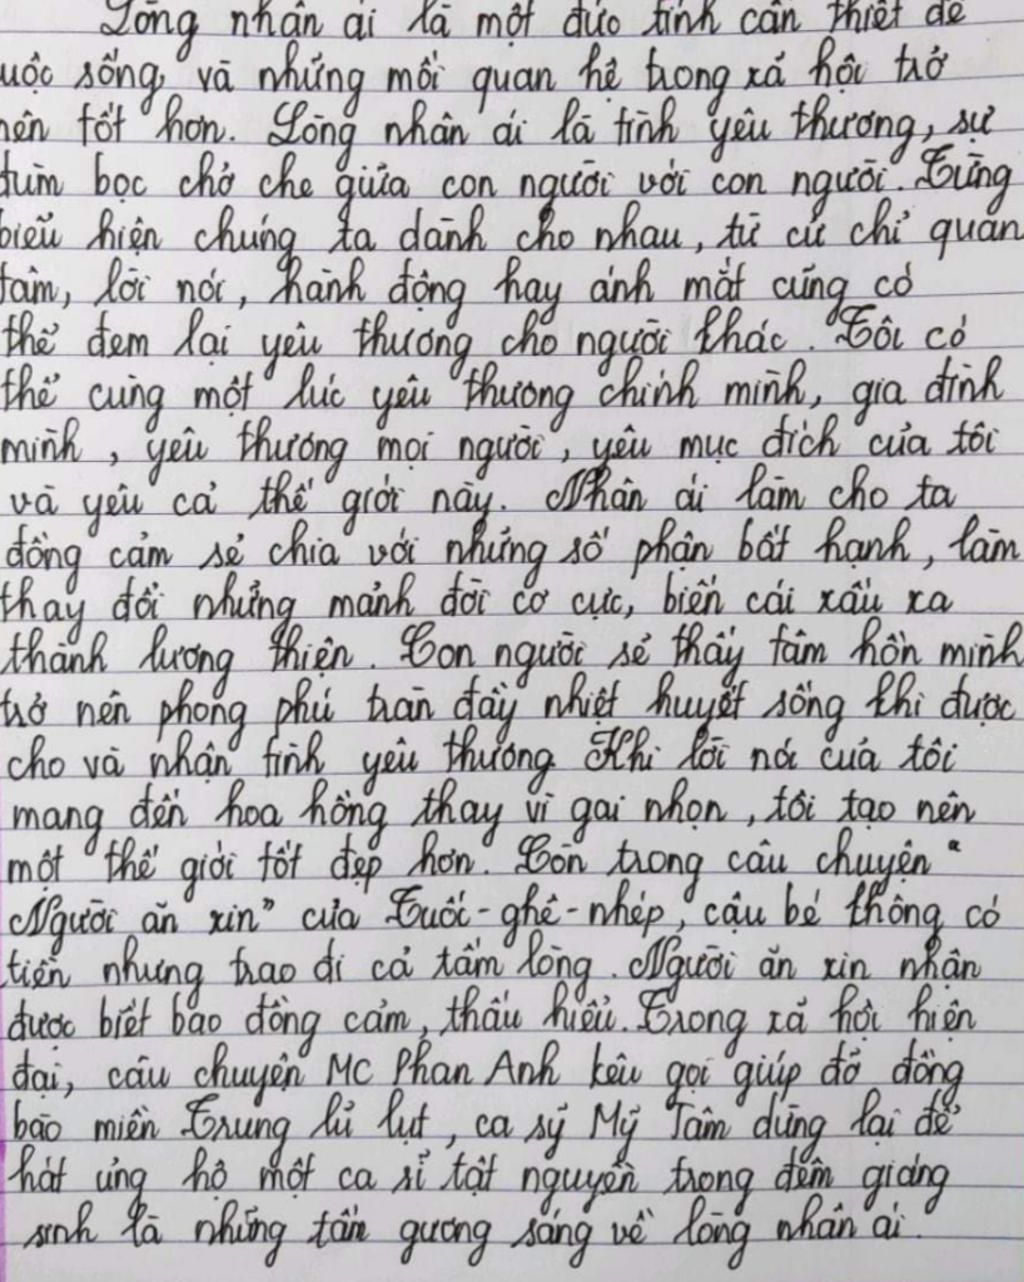 Lòng nhân ái là một đức tính cần thiết để
uộc sống, và những mối quan hệ trong xã hội trở
nên tốt hơn. Lòng nhân ái là tình yêu thương, sự
đùm bọc chở che giữa con người với con người. Từng
biểu hiện chúng ta dành cho nhau, từ cử chỉ quan
tâm, lời nói, hành động hay ánh mắt cũng có
thể đem lại yêu thương cho người khác. Tôi có
thể cùng một lúc yêu thương chính mình, gia đình
mình, yêu thương mọi người, yêu mục đích của tôi
và yêu cả thế giới này. Nhân ái làm cho ta
đồng cảm sẻ chia với những số phận bất hạnh, làm
thay đổi những mảnh đời cơ cực, biến cái xấu xa
thành lương thiện. Con người sẽ thấy tâm hồn mình
trở nên phong phú tràn đầy nhiệt huyết sống khi được
cho và nhận tình yêu thương. Khi lời nói của tôi
mang đến hoa hồng thay vì gai nhọn, tôi tạo nên
một thế giới tốt đẹp hơn. Còn trong câu chuyện "
Người ăn xin" của Tuốc-ghê-nhép, cậu bé không có
tiền nhưng trao đi cả tấm lòng. Người ăn xin nhận
được biết bao đồng cảm, thấu hiểu. Trong xã hội hiện
đại, câu chuyện MC Phan Anh kêu gọi giúp đỡ đồng
bào miền Trung lũ lụt, ca sỹ Mỹ Tâm dừng lại để
hát ủng hộ một ca sĩ tật nguyền trong đêm giáng
sinh là những tấm gương sáng về lòng nhân ái.